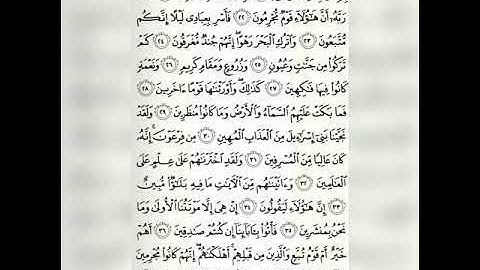 رَبَّهُۥٓ أَنَّ هَٰٓؤُلَآءِ قَوْمٌ مُّجْرِمُونَ ٢٢ فَأَسْرِ بِعِبَادِى لَيْلًا إِنَّكُم
مُّتَّبَعُونَ ٢٣ وَٱتْرُكِ ٱلْبَحْرَ رَهْوًا ۖ إِنَّهُمْ جُندٌ مُّغْرَقُونَ ٢٤ كَمْ
تَرَكُوا۟ مِن جَنَّٰتٍ وَعُيُونٍ ٢٥ وَزُرُوعٍ وَمَقَامٍ كَرِيمٍ ٢٦ وَنَعْمَةٍ
كَانُوا۟ فِيهَا فَٰكِهِينَ ٢٧ كَذَٰلِكَ ۖ وَأَوْرَثْنَٰهَا قَوْمًا ءَاخَرِينَ ٢٨
فَمَا بَكَتْ عَلَيْهِمُ ٱلسَّمَآءُ وَٱلْأَرْضُ وَمَا كَانُوا۟ مُنظَرِينَ ٢٩ وَلَقَدْ
نَجَّيْنَا بَنِىٓ إِسْرَٰٓءِيلَ مِنَ ٱلْعَذَابِ ٱلْمُهِينِ ٣٠ مِن فِرْعَوْنَ ۚ إِنَّهُۥ
كَانَ عَالِيًا مِّنَ ٱلْمُسْرِفِينَ ٣١ وَلَقَدِ ٱخْتَرْنَٰهُمْ عَلَىٰ عِلْمٍ عَلَى
ٱلْعَٰلَمِينَ ٣٢ وَءَاتَيْنَٰهُم مِّنَ ٱلْءَايَٰتِ مَا فِيهِ بَلَٰٓؤٌا۟ مُّبِينٌ
٣٣ إِنَّ هَٰٓؤُلَآءِ لَيَقُولُونَ ٣٤ إِنْ هِىَ إِلَّا مَوْتَتُنَا ٱلْأُولَىٰ وَمَا
نَحْنُ بِمُنشَرِينَ ٣٥ فَأْتُوا۟ بِـَٔابَآئِنَآ إِن كُنتُمْ صَٰدِقِينَ ٣٦ أَهُمْ
خَيْرٌ أَمْ قَوْمُ تُبَّعٍ وَٱلَّذِينَ مِن قَبْلِهِمْ ۚ أَهْلَكْنَٰهُمْ ۖ إِنَّهُمْ كَانُوا۟ مُجْرِمِينَ